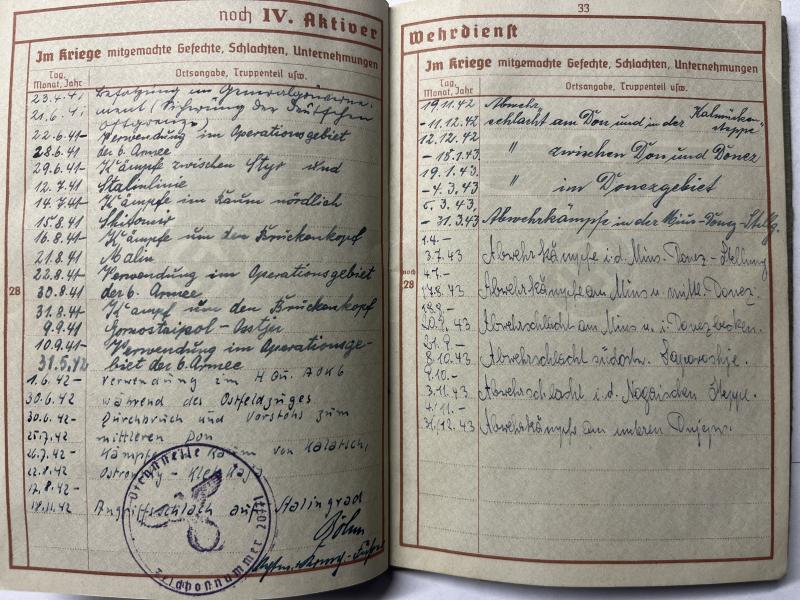 noch IV. Aktiver
Im Kriege mitgemachte Gefechte, Schlachten, Unternehmungen
Tag, Monat, Jahr
Ortsangabe, Truppenteil usw.
23.4.41 Besatzung im Generalgouverne-
21.6.41 ment (Sicherung der Deutschen
Ostgrenze)
22.6.41- Verwendung im Operationsgebiet
28.6.41 der 6. Armee
29.6.41- Kämpfe zwischen Styr und
12.7.41 Stalinlinie
14.7.41- Kämpfe im Raum nördlich
15.8.41 Shitomir
16.8.41- Kämpfe um den Brückenkopf
21.8.41 Malin
22.8.41- Verwendung im Operationsgebiet
28
30.8.41 der 6. Armee
31.8.41- Kampf um den Brückenkopf
9.9.41 Gornostaipol-Osstjer
10.9.41- Verwendung im Operationsge-
31.5.42 biet der 6. Armee
1.6.42- Verwendung im H.Qu. AOK 6
30.6.42 während des Ostfeldzuges
30.6.42- Durchbruch und Vorstoß zum
25.7.42 mittleren Don
26.7.42- Kämpfe Raum von Kalatsch,
12.8.42
17.8.42-
18.11.42 Angriffsschlacht auf Stalingrad
Böhm
33
Wehrdienst
Im Kriege mitgemachte Gefechte, Schlachten, Unternehmungen
Tag, Monat, Jahr
Ortsangabe, Truppenteil usw.
19.11.42 Abwehr-
- 11.12.42 schlacht am Don und in der Kalmücken-
steppe
12.12.42
- 18.1.43 " zwischen Don und Donez
19.1.43
- 4.3.43 " im Donezgebiet
5.3.43
- 31.3.43 Abwehrkämpfe in der Mius-Donez-Stellg.
1.4.-
3.7.43 Abwehrkämpfe i.d. Mius-Donez-Stellung
noch 28
4.7.-
17.8.43 Abwehrkämpfe am Mius u. mittl. Donez.
18.8.-
20.9.43 Abwehrschlacht am Mius u. i. Donezbecken.
21.9.-
8.10.43 Abwehrschlacht südostw. Saporoshje.
9.10.-
3.11.43 Abwehrschlacht i.d. Nogaischen Steppe.
4.11.-
31.12.43 Abwehrkämpfe am unteren Dnjepr.